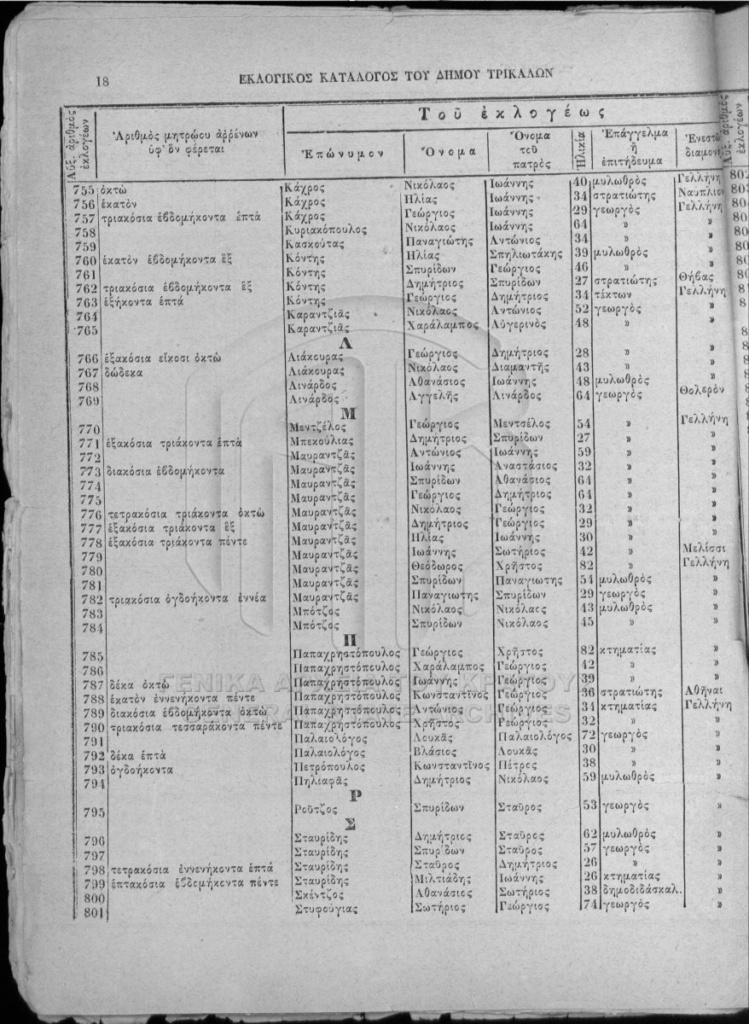 18
ΕΚΛΟΓΙΚΟΣ ΚΑΤΑΛΟΓΟΣ ΤΟΥ ΔΗΜΟΥ ΤΡΙΚΑΛΩΝ
Αὔξ. ἀριθμὸς ἐκλογέων
Ἀριθμὸς μητρῴου ἀρρένων ὑφ' ὃν φέρεται
Τοῦ ἐκλογέως
Ἐπώνυμον
Ὄνομα
Ὄνομα τοῦ πατρὸς
Ἡλικία
Ἐπάγγελμα ἢ ἐπιτήδευμα
755 ὀκτὼ Κάχρος Νικόλαος Ἰωάννης 40 μυλωθρὸς Γελλήνη
756 ἑκατὸν Κάχρος Ἠλίας Ἰωάννης 34 στρατιώτης Ναυπλιον
757 τριακόσια ἑβδομήκοντα ἑπτά Κάχρος Γεώργιος Ἰωάννης 29 γεωργὸς Γελλήνη
758 Κυριακόπουλος Νικόλαος Ἰωάννης 64 » »
759 Κασκούτας Παναγιώτης Ἀντώνιος 34 » »
760 ἑκατὸν ἑβδομήκοντα ἓξ Κόντης Ἠλίας Σπηλιωτάκης 39 μυλωθρὸς »
761 Κόντης Σπυρίδων Γεώργιος 46 » »
762 τριακόσια ἑβδομήκοντα ἓξ Κόντης Δημήτριος Σπυρίδων 27 στρατιώτης Θήβας
763 ἑξήκοντα ἑπτά Κόντης Γεώργιος Δημήτριος 34 τέκτων Γελλήνη
764 Καραντζιᾶς Νικόλαος Ἀντώνιος 52 γεωργὸς »
765 Καραντζιᾶς Χαράλαμπος Αὐγερινὸς 48 » »
Λ
766 ἑξακόσια εἴκοσι ὀκτὼ Λιάκουρας Γεώργιος Δημήτριος 28 » »
767 δώδεκα Λιάκουρας Νικόλαος Διαμαντῆς 43 » »
768 Λινάρδος Ἀθανάσιος Ἰωάννης 48 μυλωθρὸς »
769 Λινάρδος Ἀγγελῆς Λινάρδος 64 γεωργὸς Θολερὸν
Μ
770 Μεντζέλος Γεώργιος Μεντσέλος 54 » Γελλήνη
771 ἑξακόσια τριάκοντα ἑπτά Μπεκούλιας Δημήτριος Σπυρίδων 27 » »
772 Μαυραντζᾶς Ἀντώνιος Ἰωάννης 59 » »
773 διακόσια ἑβδομήκοντα Μαυραντζᾶς Ἰωάννης Ἀναστάσιος 32 » »
774 Μαυραντζᾶς Σπυρίδων Ἀθανάσιος 64 » »
775 Μαυραντζᾶς Γεώργιος Δημήτριος 64 » »
776 τετρακόσια τριάκοντα ὀκτώ Μαυραντζᾶς Νικόλαος Γεώργιος 32 » »
777 ἑξακόσια τριάκοντα ἓξ Μαυραντζᾶς Δημήτριος Γεώργιος 29 » »
778 ἑξακόσια τριάκοντα πέντε Μαυραντζᾶς Ἠλίας Ἰωάννης 30 » »
779 Μαυραντζᾶς Ἰωάννης Σωτήριος 42 » Μελίσσι
780 Μαυραντζᾶς Θεόδωρος Χρῆστος 82 » Γελλήνη
781 Μαυραντζᾶς Σπυρίδων Παναγιωτης 54 μυλωθρὸς »
782 τριακόσια ὀγδοήκοντα ἐννέα Μαυραντζᾶς Παναγιωτης Σπυρίδων 29 γεωργὸς »
783 Μπότζος Νικόλαος Νικόλαος 43 μυλωθρὸς »
784 Μπότζος Σπυρίδων Νικόλαος 45 » »
Π
785 Παπαχρηστόπουλος Γεώργιος Χρῆστος 82 κτηματίας »
786 Παπαχρηστόπουλος Χαράλαμπος Γεώργιος 42 » »
787 δέκα ὀκτώ Παπαχρηστόπουλος Ἰωάννης Γεώργιος 39 » »
788 ἑκατὸν ἐννενήκοντα πέντε Παπαχρηστόπουλος Κωνσταντῖνος Γεώργιος 36 στρατιώτης Ἀθῆναι
789 διακόσια ἑβδομήκοντα ὀκτώ Παπαχρηστόπουλος Ἀντώνιος Γεώργιος 34 κτηματίας Γελλήνη
790 τριακόσια τεσσαράκοντα πέντε Παπαχρηστόπουλος Χρῆστος Γεώργιος 32 » »
791 Παλαιολόγος Λουκᾶς Παλαιολόγος 72 γεωργὸς »
792 δέκα ἑπτά Παλαιολόγος Βλάσιος Λουκᾶς 30 » »
793 ὀγδοήκοντα Πετρόπουλος Κωνσταντῖνος Πέτρος 38 » »
794 Πηλιαφᾶς Δημήτριος Νικόλαος 59 μυλωθρὸς »
Ρ
795 Ροῦτζος Σπυρίδων Σταῦρος 53 γεωργὸς »
Σ
796 Σταυρίδης Δημήτριος Σταῦρος 62 μυλωθρὸς »
797 Σταυρίδης Σπυρίδων Σταῦρος 57 γεωργὸς »
798 τετρακόσια ἐννενήκοντα ἑπτά Σταυρίδης Σταῦρος Δημήτριος 26 » »
799 ἑπτακόσια ἑβδομήκοντα πέντε Σταυρίδης Μιλτιάδης Ἰωάννης 26 κτηματίας »
800 Σκέντζος Ἀθανάσιος Σωτήριος 38 δημοδιδάσκαλ. »
801 Στυφούγιας Σωτήριος Γεώργιος 74 γεωργὸς »